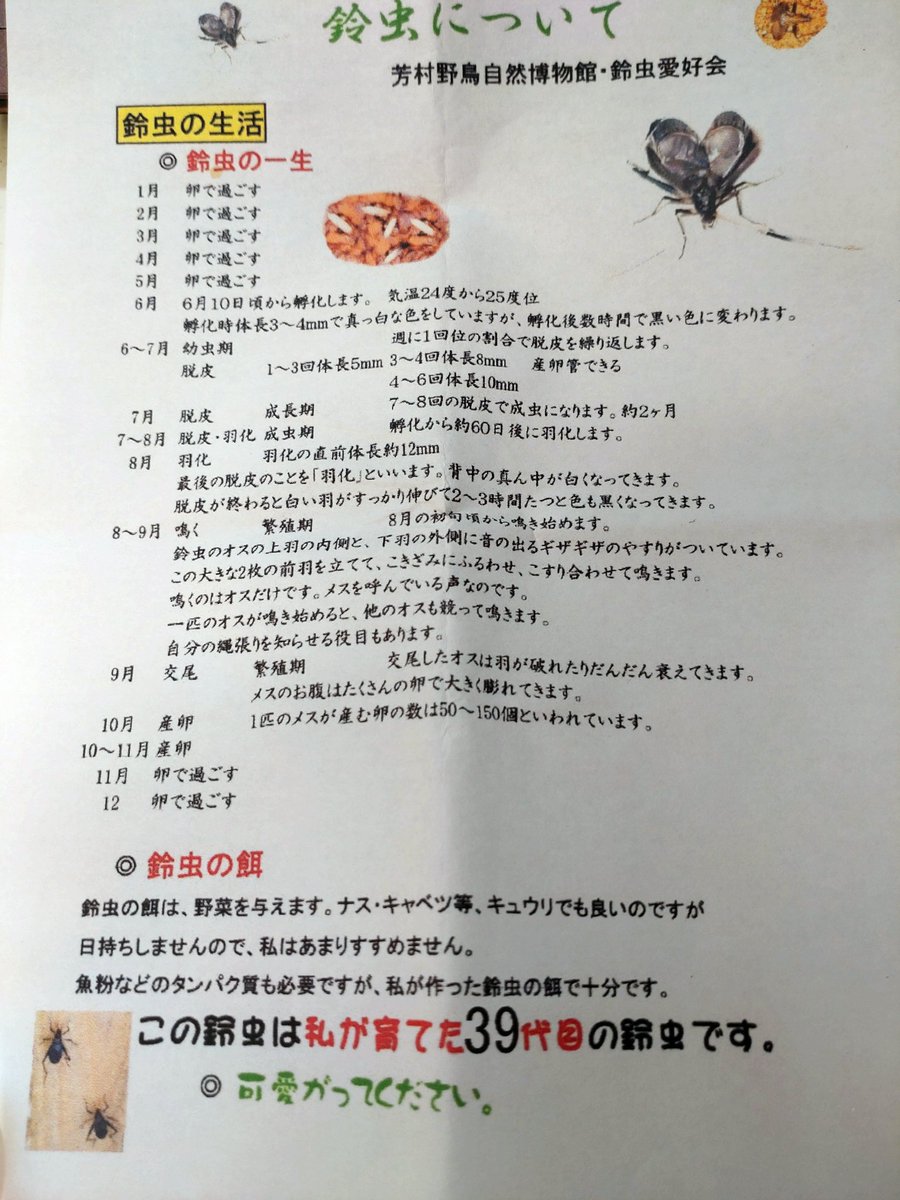 鈴虫について
芳村野鳥自然博物館・鈴虫愛好会
鈴虫の生活
◎ 鈴虫の一生
1月 卵で過ごす
2月 卵で過ごす
3月 卵で過ごす
4月 卵で過ごす
5月 卵で過ごす
6月 6月10日頃から孵化します。 気温24度から25度位
孵化時体長3～4mmで真っ白な色をしていますが、孵化後数時間で黒い色に変わります。
6～7月 幼虫期 週に1回位の割合で脱皮を繰り返します。
脱皮 1～3回体長5mm 3～4回体長8mm 産卵管できる
4～6回体長10mm
7月 脱皮 成長期 7～8回の脱皮で成虫になります。約2ヶ月
7～8月 脱皮・羽化 成虫期 孵化から約60日後に羽化します。
8月 羽化 羽化の直前体長約12mm
最後の脱皮のことを「羽化」といいます。背中の真ん中が白くなってきます。
脱皮が終わると白い羽がすっかり伸びて2～3時間たつと色も黒くなってきます。
8～9月 鳴く 繁殖期 8月の初旬頃から鳴き始めます。
鈴虫のオスの上羽の内側と、下羽の外側に音の出るギザギザのやすりがついています。
この大きな2枚の前羽を立てて、こきざみにふるわせ、こすり合わせて鳴きます。
鳴くのはオスだけです。メスを呼んでいる声なのです。
一匹のオスが鳴き始めると、他のオスも競って鳴きます。
自分の縄張りを知らせる役目もあります。
9月 交尾 繁殖期 交尾したオスは羽が破れたりだんだん衰えてきます。
メスのお腹はたくさんの卵で大きく膨れてきます。
10月 産卵 1匹のメスが産む卵の数は50～150個といわれています。
10～11月 産卵
11月 卵で過ごす
12 卵で過ごす
◎ 鈴虫の餌
鈴虫の餌は、野菜を与えます。ナス・キャベツ等、キュウリでも良いのですが
日持ちしませんので、私はあまりすすめません。
魚粉などのタンパク質も必要ですが、私が作った鈴虫の餌で十分です。
この鈴虫は私が育てた39代目の鈴虫です。
◎ 可愛がってください。